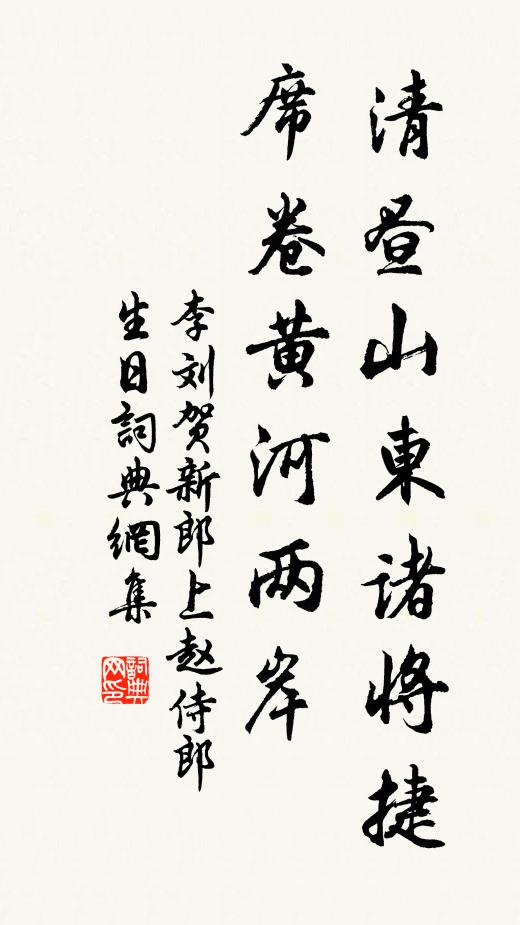 清昼山東諸將捷
席卷黄河两岸
李刘贺新郎上赵侍郎
生日詞典網集
詞典网印